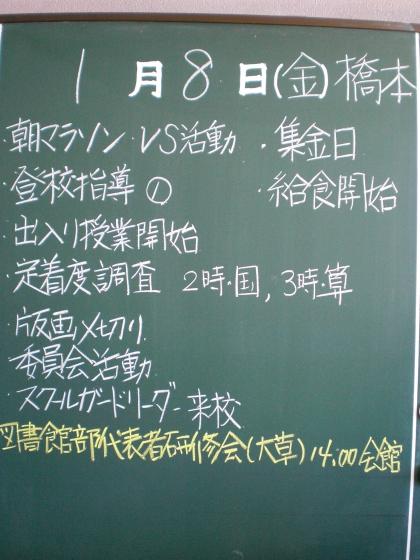 1月8日(金)橋本
・朝マラソン・VS活動 ・集金日
・登校指導① ・給食開始
・出入り授業開始
・定着度調査 2時・国, 3時・算
・版画〆切り
・委員会活動
・スクールガードリーダー来校
図書館部代表者研修会(大草)14:00会館